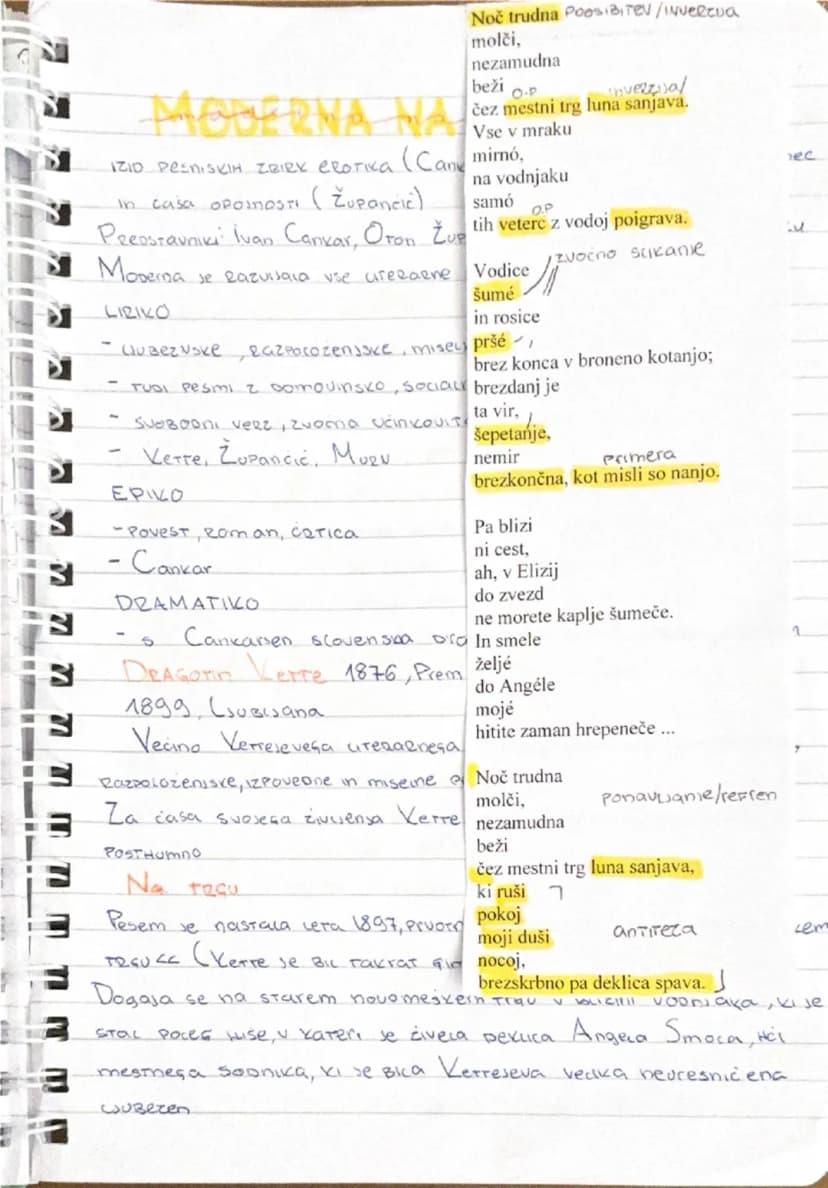 MODERNA NA
IZID PESNISKIH ZBIRK EROTIKA (CANK
IN ČAŠA OPOJNOSTI (ŽUPANČIČ)
PREDSTAVNIKI: IVAN CANKAR, OTON ŽUP
MODERNA JE RAZVIJALA VSE LITERARNE
LIRIKO
- LJUBEZNSKE, RAZPOLOŽENJSKE, MISEL
- TUDI PESMI Z DOMOVINSKO, SOCIALN
- SVOBODNI VERZ, ZVOČNA UČINKOVIT
- KETTE, ŽUPANČIČ, MURN
EPIKO
- POVEST, ROMAN, ČRTICA
- CANKAR
DRAMATIKO
- S CANKARJEM SLOVENSKA DRA
DRAGOTIN KETTE 1876, PREM
1899, LJUBLJANA
VEČINO KETTEJEVEGA LITERARNEGA
RAZPOLOŽENJSKE, IZPOVEDNE IN MISELNE
ZA ČASA SVOJEGA ŽIVLJENJA KETTE
POSTHUMNO
NA TRGU
PESEM JE NASTALA LETA 1897, PRVOTN
TRGU << (KETTE JE BIL TAKRAT
DOGAJA SE NA STAREM NOVOMEŠKEM TRGU V BLIŽINI VODNJAKA, KI JE
STAL POLEG HIŠE, V KATERI JE ŽIVELA DEKLICA ANGELA SMOLA, HČI
MESTNEGA SODNIKA, KI JE BILA KETTEJEVA VELIKA NEURESNIČENA
LJUBEZEN
Noč trudna POOSIBITEV/INVERZIJA
molči,
nezamudna
beži O.P inverzija/
čez mestni trg luna sanjava.
Vse v mraku
mirnó,
na vodnjaku
samó O.P
tih veterc z vodoj poigrava.
Vodice zvočno slikanje
šumé
in rosice
pršé
brez konca v broneno kotanjo;
brezdanj je
ta vir,
šepetanje,
nemir primera
brezkončna, kot misli so nanjo.
Pa blizi
ni cest,
ah, v Elizij
do zvezd
ne morete kaplje šumeče.
In smele
željé
do Angéle
mojé
hitite zaman hrepeneče ...
Noč trudna
molči, ponavljanje/refren
nezamudna
beži
čez mestni trg luna sanjava,
ki ruši
pokoj
moji duši antiteza
nocoj,
brezskrbno pa deklica spava.